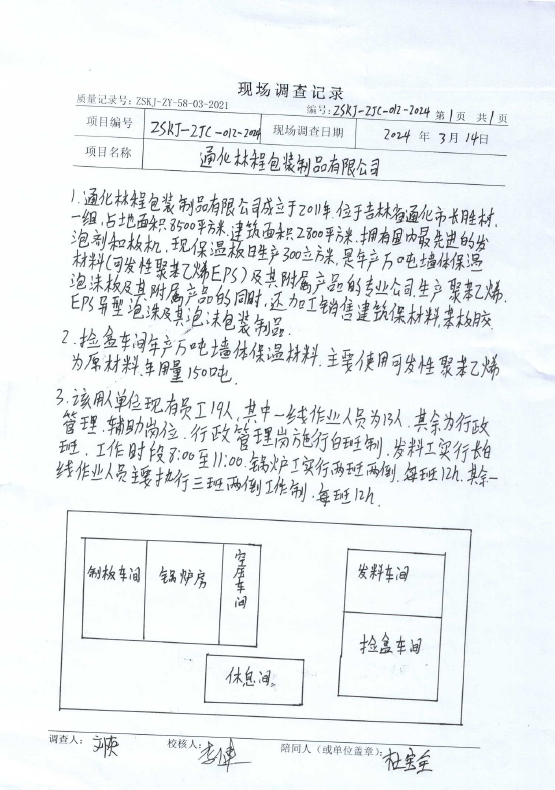 现场调查记录
质量记录号：ZSKJ-ZY-58-03-2021
编号：ZSKJ-ZJC-012-2024 第1页 共1页
项目编号 ZSKJ-ZJC-012-2024 现场调查日期 2024 年 3月14日
项目名称 通化林程包装制品有限公司
1.通化林程包装制品有限公司成立于2011年.位于吉林省通化市长胜村
一组,占地面积8500平方米.建筑面积2800平方米.拥有国内最先进的发
泡剂和板机.现保温板日生产300立方米.是年产万吨墙体保温
材料(可发性聚苯乙烯EPS)及其附属产品的专业公司.生产聚苯乙烯.
泡沫板及其附属产品的同时.还加工销售建筑保材料苯板胶.
EPS异型泡沫及其泡沫包装制品.
2.捡盒车间年产万吨墙体保温材料.主要使用可发性聚苯乙烯
为原材料.年用量150吨.
3.该用人单位现有员工19人.其中一线作业人员为13人.其余为行政
管理.辅助岗位.行政管理岗施行白班制.发料工实行长白
班.工作时段8:00至11:00.锅炉工实行两班两倒.每班12h.其余一
线作业人员主要执行三班两倒工作制.每班12h.
制板车间
锅炉房
空压车间
发料车间
捡盒车间
休息间
调查人： 校核人： 陪同人（或单位盖章）：杜宝全